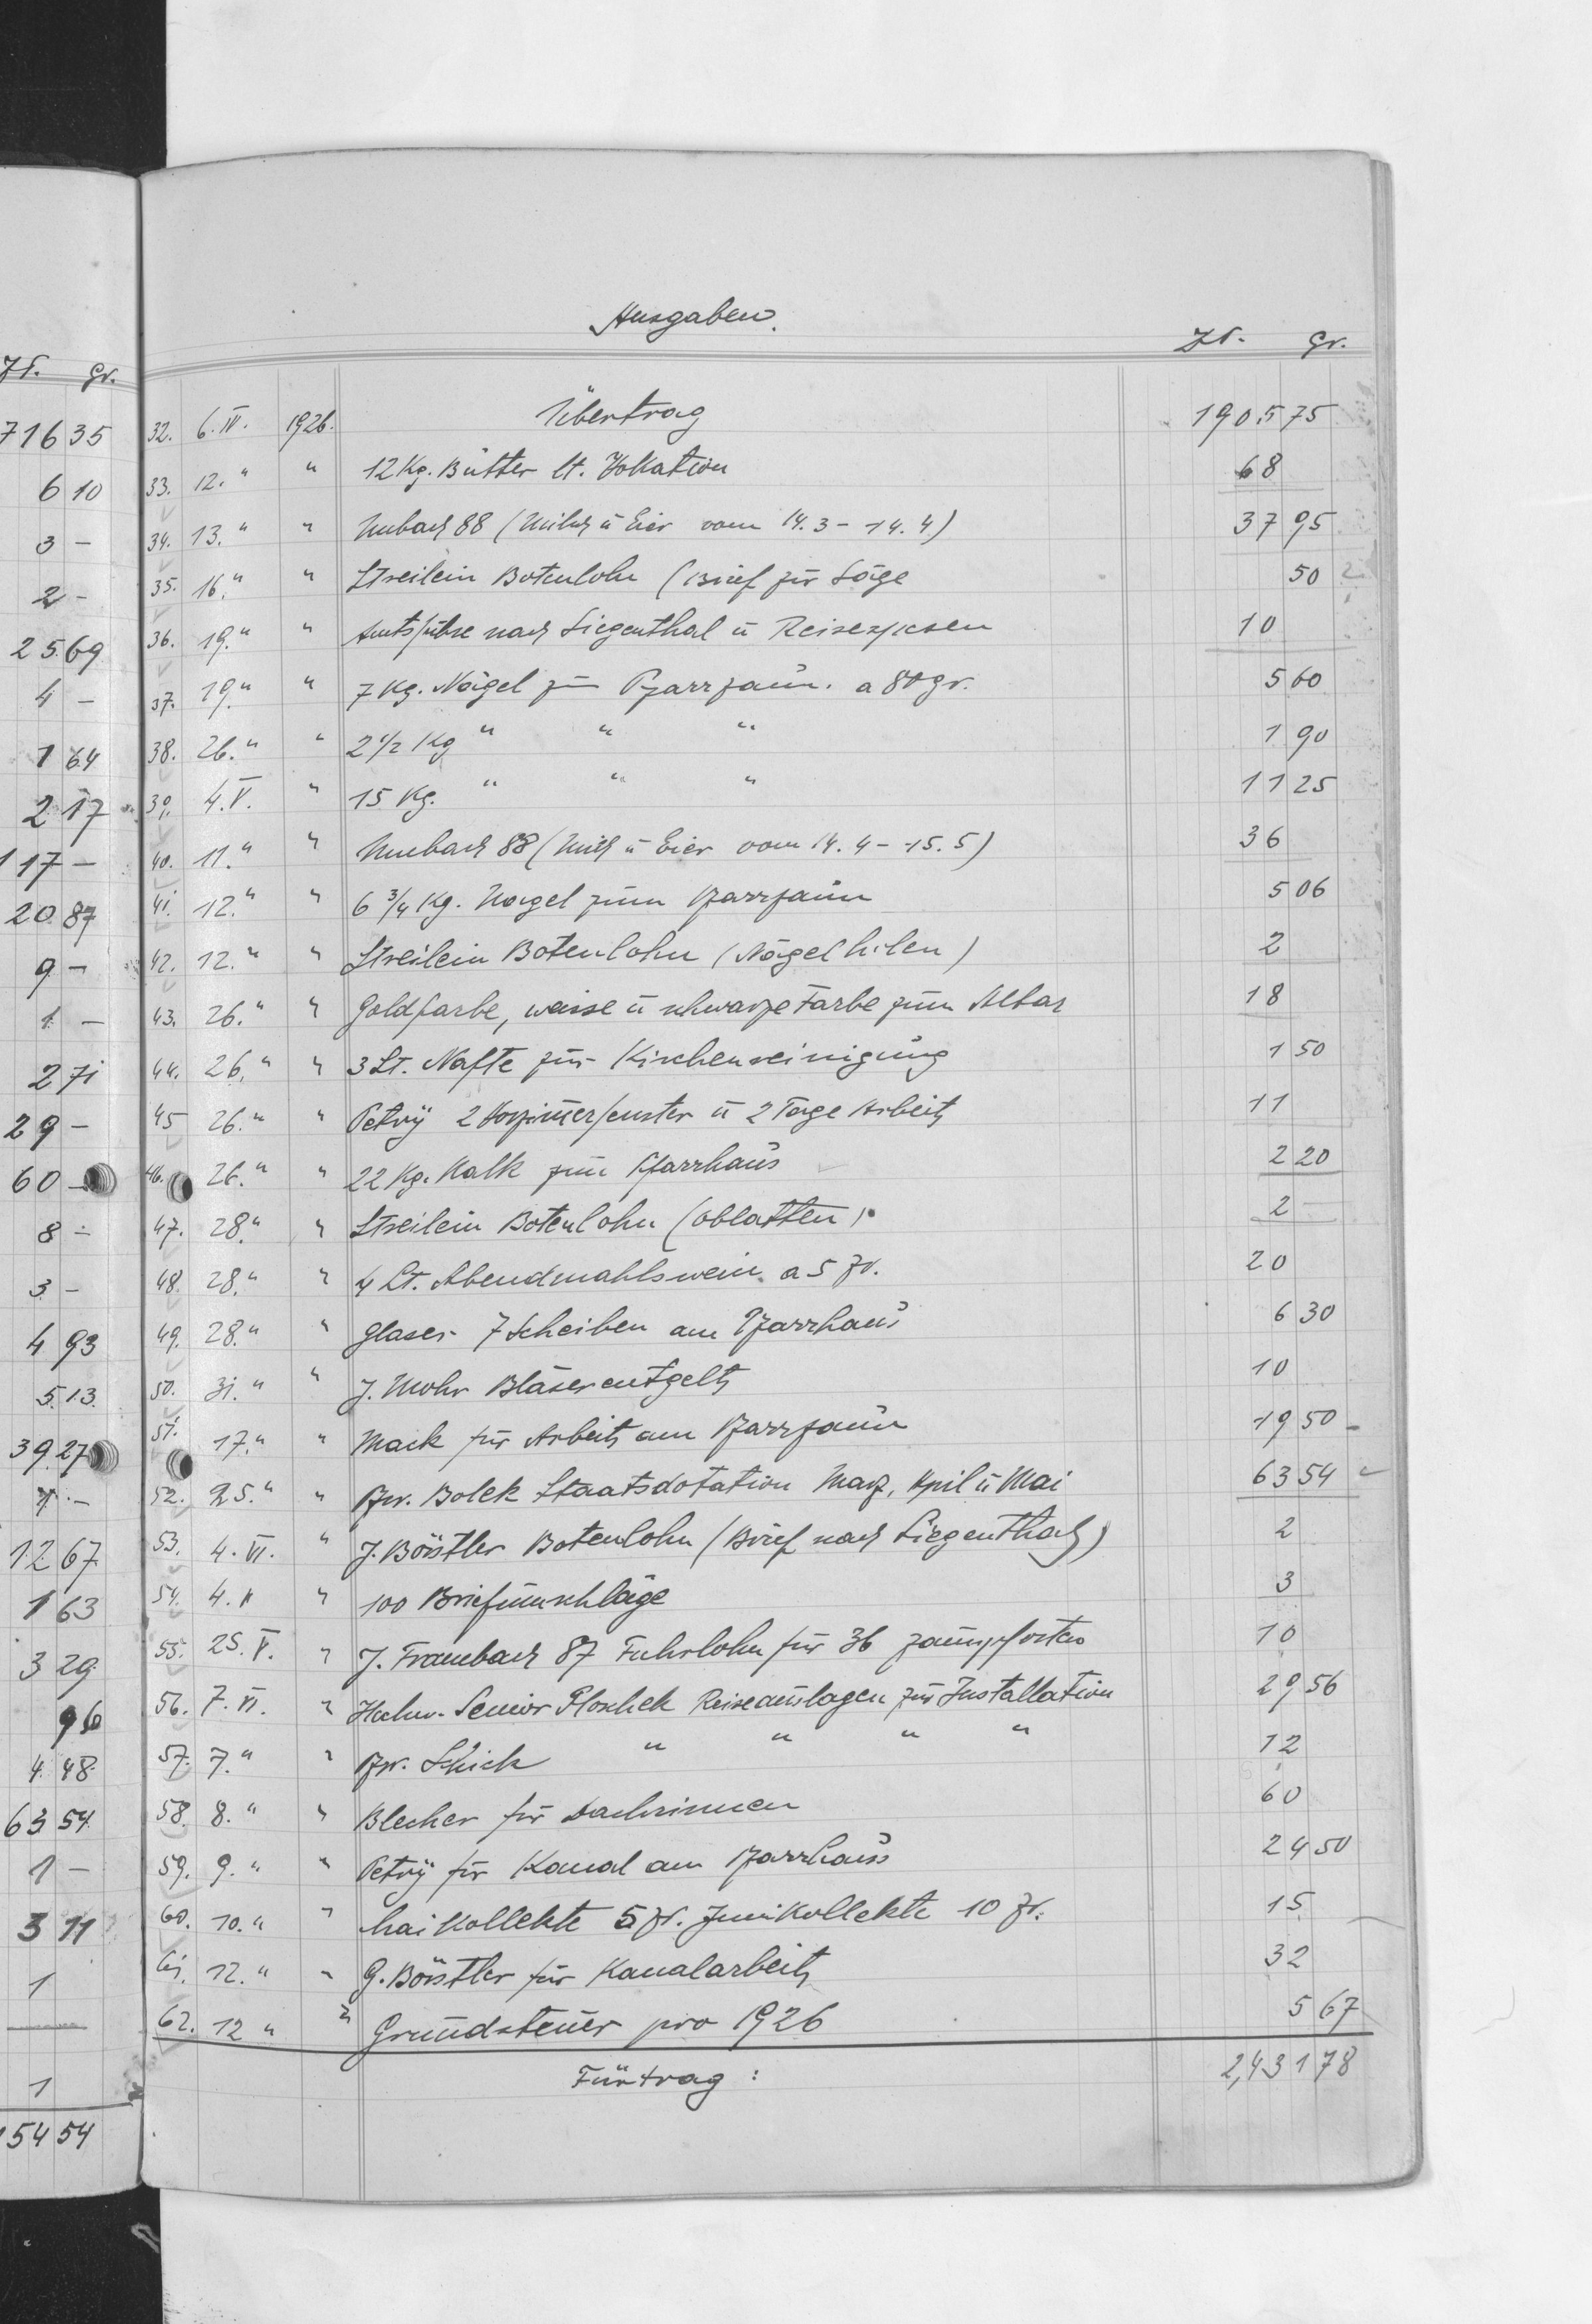 Ausgaben.
Zł. Gr.
32. 6. IV. 1926. Übertrag 190.5 75
33. 12. " " 12 Kg. Butter lt. Vokation 68
34. 13. " " 88 (Milch u Eier vom 14. 3 - 14. 4) 37 95
35. 16. " " Streilein Botenlohn (Brief zur Säge 50
36. 19. " " nach Siegenthal u Reisespesen 10
37. 19. " " 7 Kg. Nägel zum Pfarrzaun. a 80 gr. 5 60
38. 26. " " 2 1/2 Kg " " " 1 90
39. 4. V. " 15 Kg. " " " 11 25
40. 11. " " 88 (Milch u Eier vom 14. 4 - 15. 5) 36
41. 12. " " 6 3/4 Kg. Nägel zum Pfarrzaun 5 06
42. 12. " " Streilein Botenlohn (Nägel holen) 2
43. 26. " " Goldfarbe, weisse u schwarze Farbe zum Altar 18
44. 26. " " 3 Lt. Nafte zur Kirchenreinigung 1 50
45 26. " " Petry 2 u 2 Tage Arbeit 11
46. 26. " " 22 Kg. Kalk zum Pfarrhaus 2 20
47. 28. " " Streilein Botenlohn (Oblatten). 2 -
48. 28. " " 4 Lt. Abendmahlswein a 5 Zł. 20
49. 28. " " Glaser 7 Scheiben am Pfarrhaus 6 30
50. 31. " " J. Mohr Bläserentgelt 10
51. 17. " " Mack für Arbeit am Pfarrzaun 19 50 -
52. 25. " " Pfr. Bolek Staatsdotation März, April u Mai 63 54
53. 4. VI. " J. Börstler Botenlohn (Brief nach Siegenthal) 2
54. 4. " " 100 Briefumschläge 3
55. 25. V. " J. 87 Fuhrlohn für 36 Zaunpfosten 10
56. 7. VI. " Hochw. Senior Ploschek Reiseauslagen zur Installation 29 56
57. 7. " " Pfr. Schick " " " " 12
58. 8. " " Blecher für Dachrinnen 60
59. 9. " " Petry für Kanal am Pfarrhaus 24 50
60. 10. " " Maikollekte 5 Zł. Junikollekte 10 Zł. 15
61. 12. " " G. Börstler für Kanalarbeit 32
62. 12 " " Grundsteuer pro 1926 5 67
Fürtrag : 2,43 1 78
Zł. Gr.
716 35
6 10
3 -
2 -
25.69
4 -
1 64
2 17
117 -
20.87
9 -
1 -
2 71
29 -
60 -
8 -
3 -
4 93
5.13
39.27
12 67
1 63
3 29
96
4.48
63 54
1 -
3 11
1
1
154 54